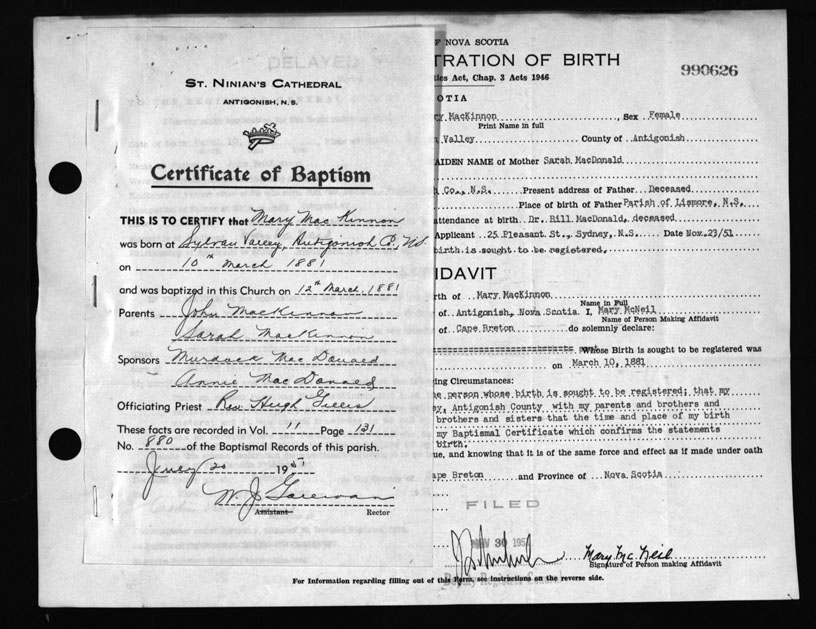 DELAYED
ST. NINIAN'S CATHEDRAL
ANTIGONISH, N.S.
Certificate of Baptism
THIS IS TO CERTIFY that Mary MacKinnon
was born at Sylvan Valley, Antigonish Co., N.S.
on 10th March 1881
and was baptized in this Church on 12th March, 1881
Parents John MacKinnon
Sarah MacKinnon
Sponsors Murdock MacDonald
Annie MacDonald
Officiating Priest Rev Hugh Gillis
These facts are recorded in Vol. 11 Page 131
No. 880 of the Baptismal Records of this parish.
July 20 1951
W. J. Gallivan
Assistant Rector
F NOVA SCOTIA
TRATION OF BIRTH
tics Act, Chap. 3 Acts 1946
990626
OTIA
ry MacKinnon, Sex Female
Print Name in full
n Valley County of Antigonish
AIDEN NAME of Mother Sarah MacDonald
h Co., N.S. Present address of Father Deceased
Place of birth of Father Parish of Lismore, N.S.
attendance at birth Dr. Bill MacDonald, deceased
Applicant 25 Pleasant St., Sydney, N.S. Date Nov.23/51
birth is sought to be registered.
FIDAVIT
rth of Mary MacKinnon
Name in Full
of Antigonish, Nova Scotia. I, Mary McNeil
Name of Person Making Affidavit
of Cape Breton do solemnly declare:
Whose Birth is sought to be registered was
on March 10, 1881
ing Circumstances:
he person whose birth is sought to be registered; that my
ey, Antigonish County with my parents and brothers and
brothers and sisters that the time and place of my birth
my Baptismal Certificate which confirms the statements
birth.
ue, and knowing that it is of the same force and effect as if made under oath
ape Breton and Province of Nova Scotia
FILED
NOV 30 195
Mary McNeil
Signature of Person making Affidavit
For Information regarding filling out of this Form, see instructions on the reverse side.